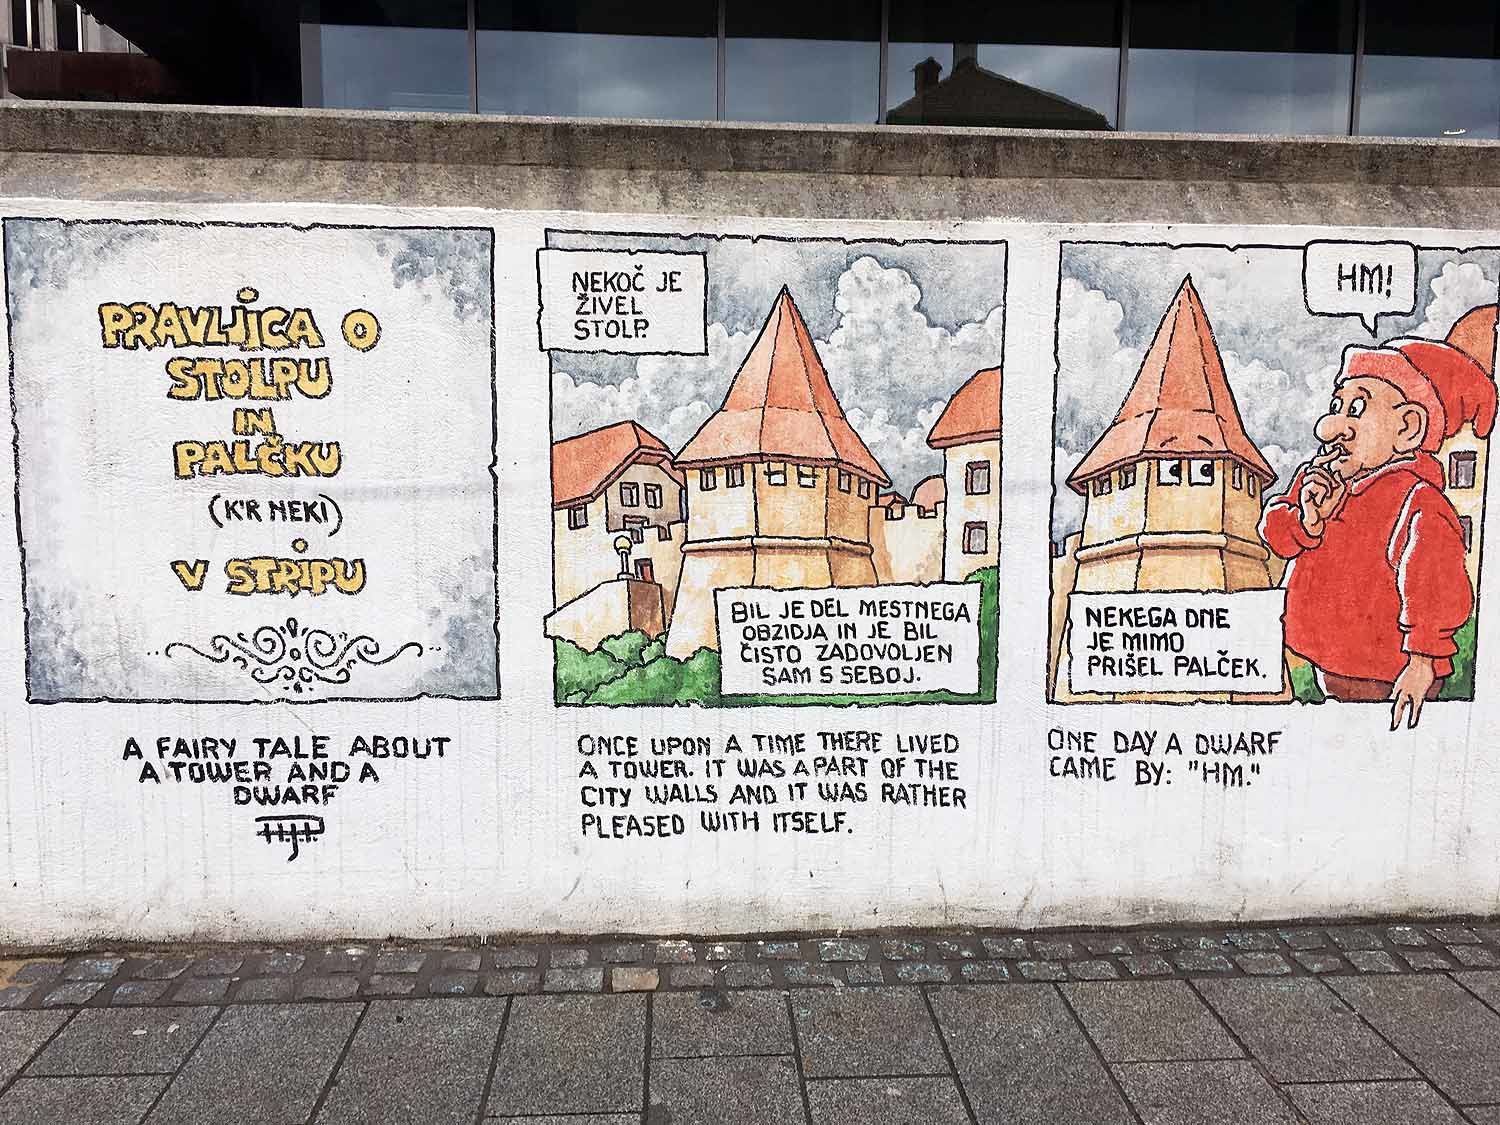 PRAVLJICA O
STOLPU
IN
PALČKU
(K'R NEKI)
V STRIPU
A FAIRY TALE ABOUT
A TOWER AND A
DWARF
NEKOČ JE
ŽIVEL
STOLP.
BIL JE DEL MESTNEGA
OBZIDJA IN JE BIL
ČISTO ZADOVOLJEN
SAM S SEBOJ.
ONCE UPON A TIME THERE LIVED
A TOWER. IT WAS A PART OF THE
CITY WALLS AND IT WAS RATHER
PLEASED WITH ITSELF.
HM!
NEKEGA DNE
JE MIMO
PRIŠEL PALČEK.
ONE DAY A DWARF
CAME BY: "HM."